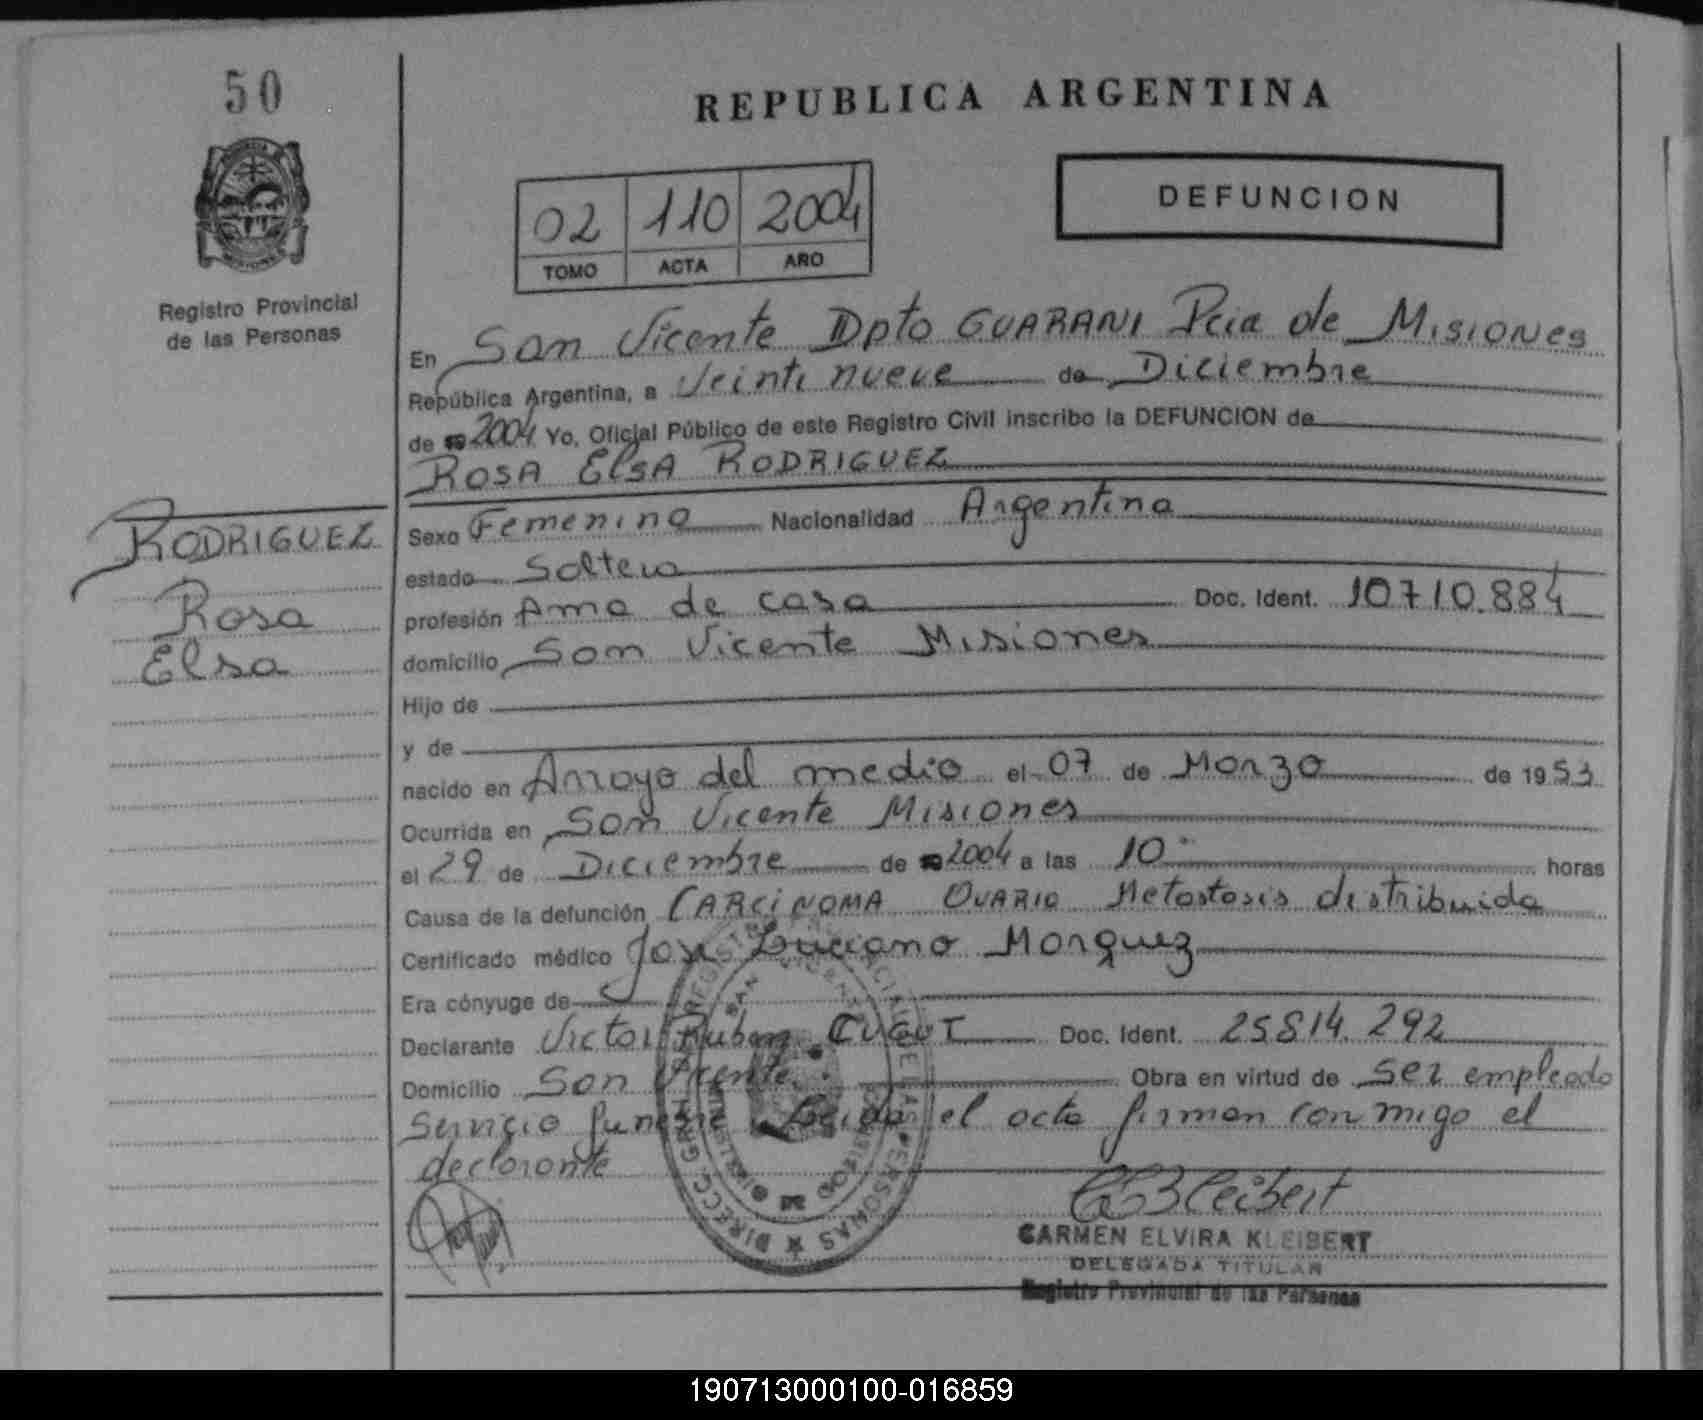 50
REPUBLICA ARGENTINA
02 110 2004
TOMO ACTA AÑO
DEFUNCION
Registro Provincial
de las Personas
En San Vicente Dpto GUARANI Pcia de MISIONES
República Argentina, a Veinti nueve de Diciembre
de 2004 Yo, Oficial Público de este Registro Civil inscribo la DEFUNCION de
ROSA ELSA RODRIGUEZ
RODRIGUEZ
Rosa
Elsa
Sexo Femenino Nacionalidad Argentina
estado Soltera
profesión Ama de casa Doc. Ident. 10710.884
domicilio San Vicente Misiones
Hijo de
y de
nacido en Arroyo del medio el 07 de Marzo de 1953
Ocurrida en San Vicente Misiones
el 29 de Diciembre de 2004 a las 10 horas
Causa de la defunción CARCINOMA OVARIO Metastasis distribuida
Certificado médico José Luciano Marquez
Era cónyuge de
Declarante Victor Ruben Doc. Ident. 25814.292
Domicilio San Vicente Obra en virtud de ser empleado
Servicio funebre Leida el acta firman conmigo el
declarante
CARMEN ELVIRA KLEIBERT
DELEGADA TITULAR
Registro Provincial de las Personas
190713000100-016859